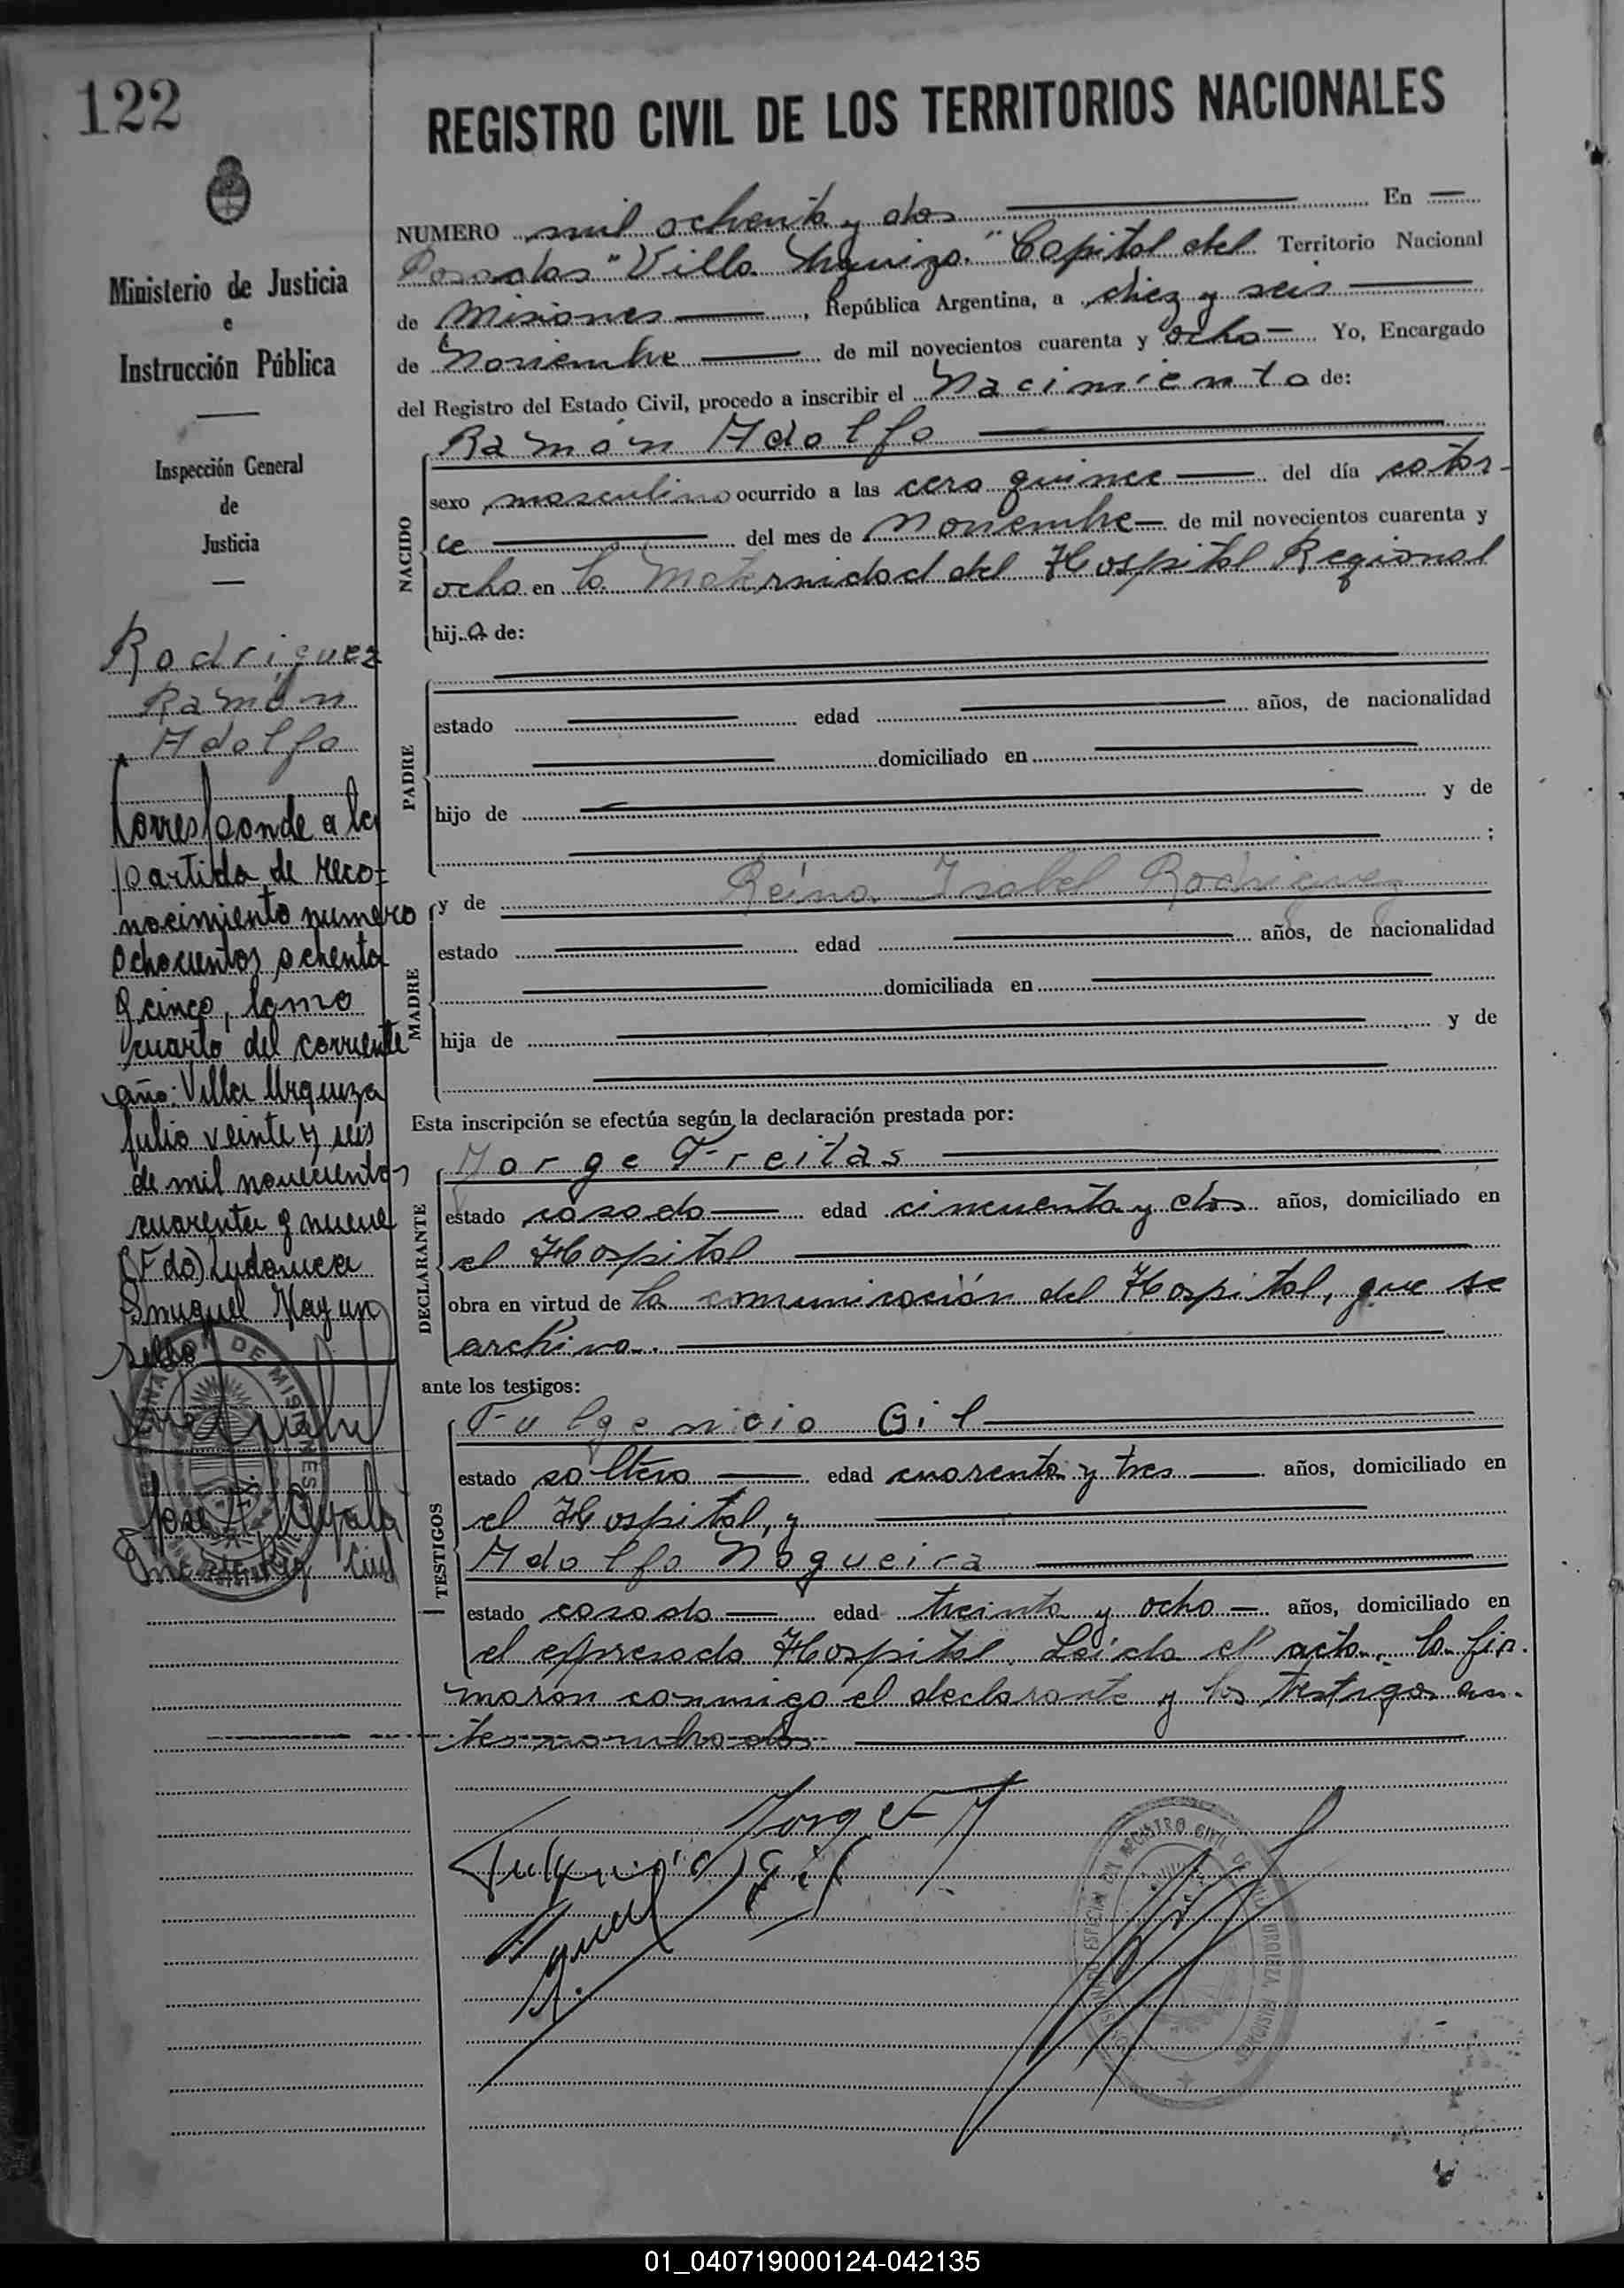 122
REGISTRO CIVIL DE LOS TERRITORIOS NACIONALES
Ministerio de Justicia
e
Instrucción Pública
Inspección General
de
Justicia
Rodriguez
Ramón
Adolfo
Corresponde a la
partida de reco-
nocimiento numero
ochocientos ochenta
y cinco, tomo
cuarto del corriente
año: Villa Urquiza
Julio veinte y seis
de mil novecientos
cuarenta y nueve
(Fdo)
sello
Jose A. Ayala
Reg Civil
NUMERO mil ochenta y dos En
Posadas "Villa Urquiza." Capital del Territorio Nacional
de Misiones, República Argentina, a diez y seis
de Noviembre de mil novecientos cuarenta y ocho Yo, Encargado
del Registro del Estado Civil, procedo a inscribir el Nacimiento de:
NACIDO
Ramón Adolfo
sexo masculino ocurrido a las cero quince del día cator-
ce del mes de Noviembre de mil novecientos cuarenta y
ocho en la Maternidad del Hospital Regional
hijo de:
PADRE
estado edad años, de nacionalidad
domiciliado en
hijo de y de
;
MADRE
y de Reina Isabel Rodriguez
estado edad años, de nacionalidad
domiciliada en
hija de y de
Esta inscripción se efectúa según la declaración prestada por:
DECLARANTE
Jorge Freitas
estado casado edad cincuenta y dos años, domiciliado en
el Hospital
obra en virtud de la comunicación del Hospital, que se
archiva.
ante los testigos:
TESTIGOS
Fulgencio Gil
estado soltero edad cuarenta y tres años, domiciliado en
el Hospital, y
Adolfo Nogueira
estado casado edad treinta y ocho años, domiciliado en
el expresado Hospital. Leída el acta, la fir-
maron conmigo el declarante y los testigos an-
tes nombrados
Jorge F
Fulgencio Gil
01_040719000124-042135